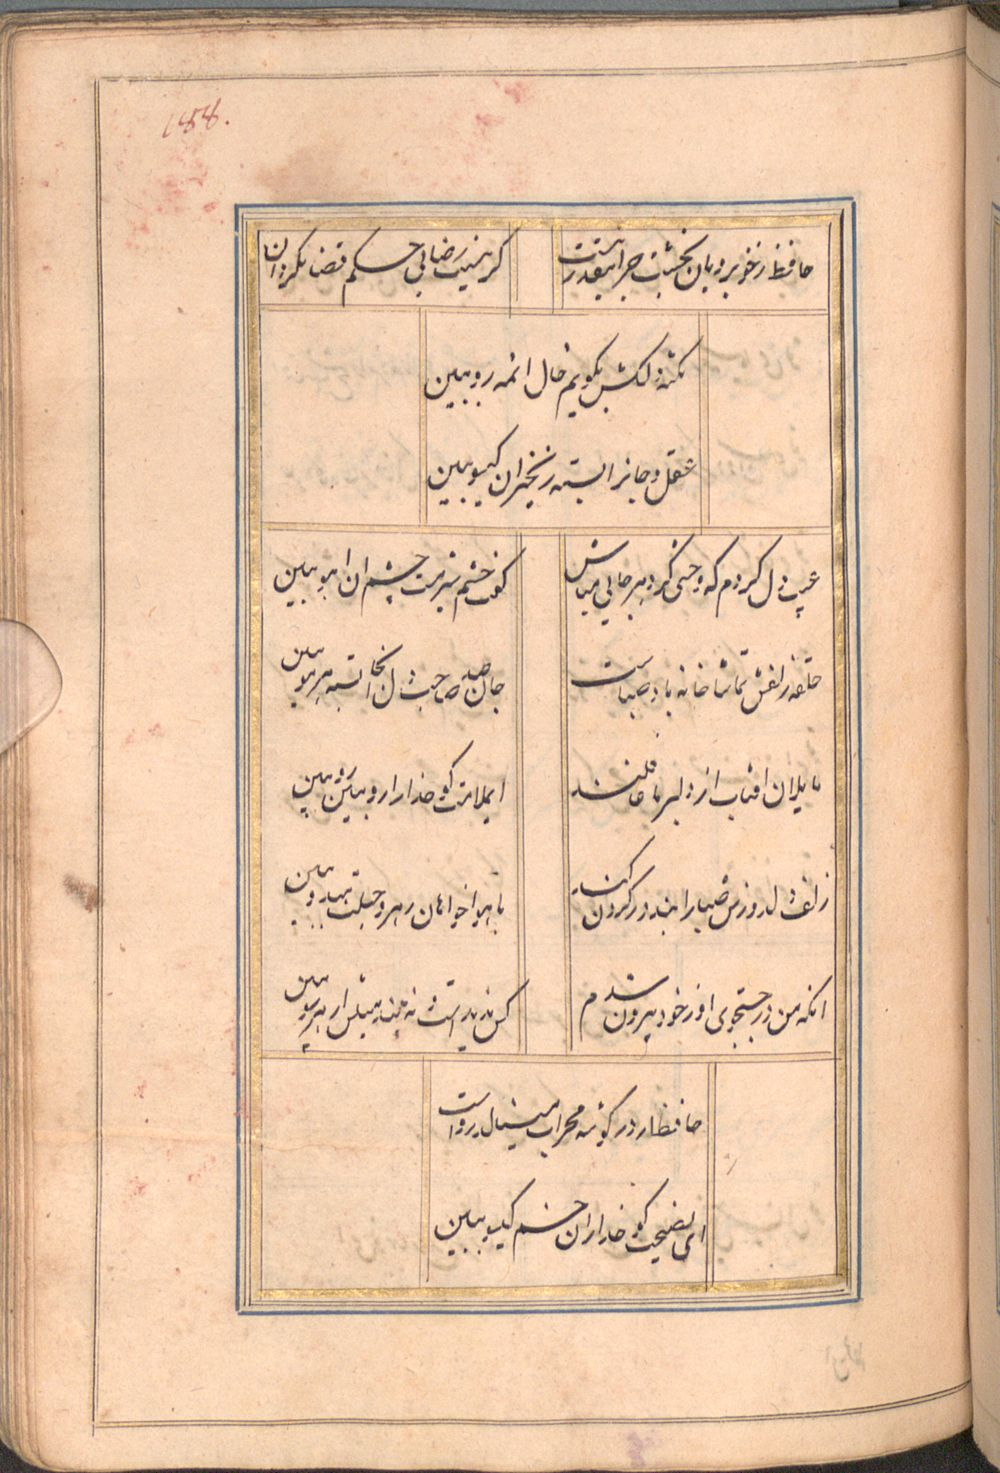 188.
حافظ ز خوبرویان بختت جز اینقدر نیست
گر نیست رضایی حکم قضا بگردان
نکته دلکش بگویم خال انمه رو ببین
عقل و جانرا بسته زنجیر ان گیسو ببین
عیب دل کردم که وحشی گرد و هرجایی مباش
گفت چشم شیر مست چشم ان اهو ببین
حلقه زلفش تماشا خانه باد صباست
جان صد صاحب دل انجا بسته هر مو ببین
مایلان افتاب از دلبر ما غافلند
ایملامت گو خدارا رو ببین رو ببین
زلف دل دزدش صبارا بند بر گردن نهاد
با هوا خواهان رهرو حیلت هندو ببین
انکه من در جستجوی او ز خود بیرون شدم
کس ندیدست و نه بیند مثلش از هر سو ببین
حافظ ار در گوشه محراب مینالد رواست
ای نصیحت گو خدارا ان خم گیسو ببین